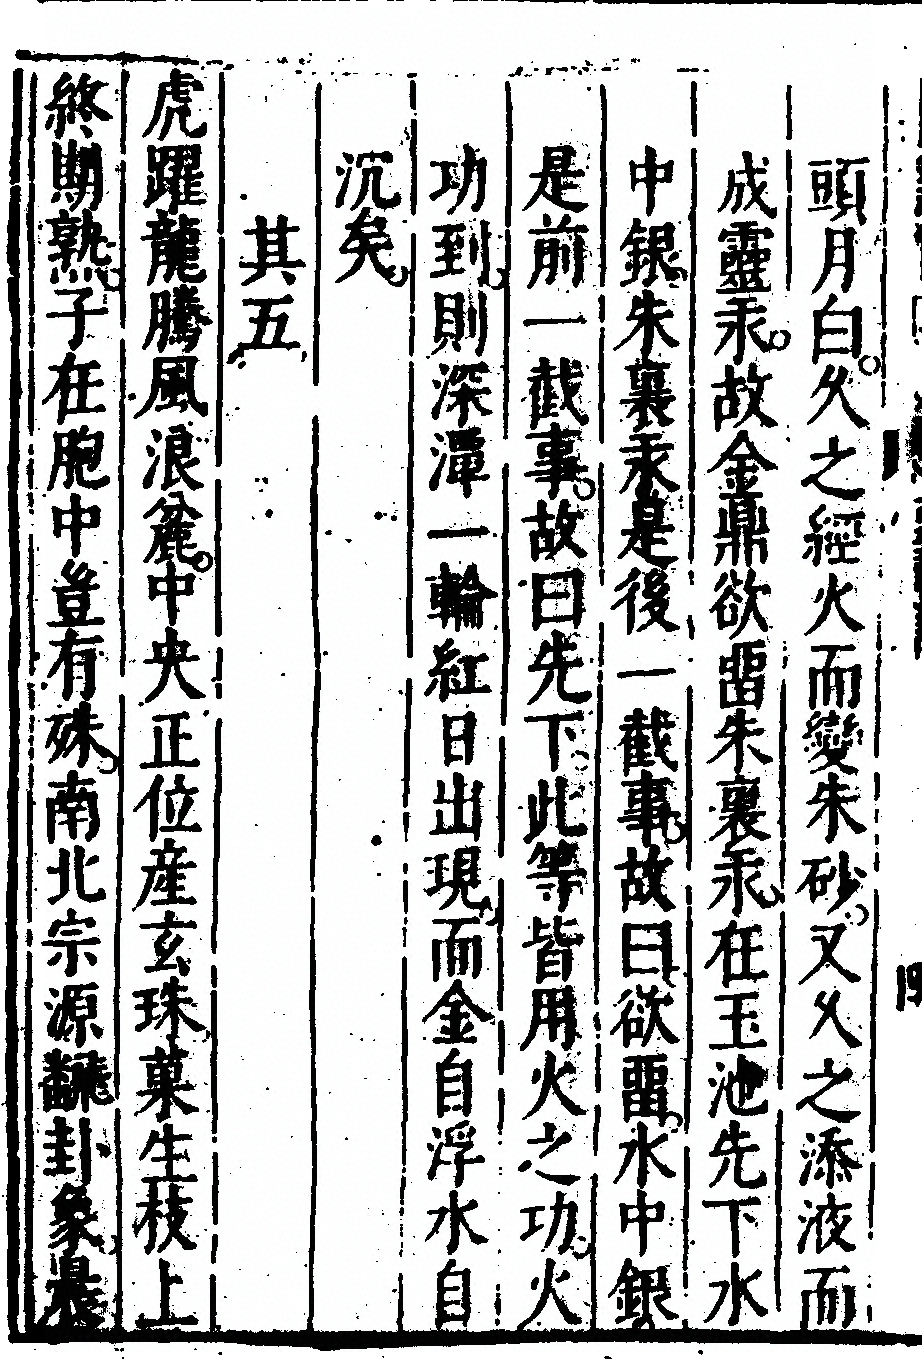 頭月白久之經火而變朱砂又久之添液而
成靈汞故金鼎欲畱朱裏汞在玉池先下水
中銀朱裏汞是後一截事故曰欲畱水中銀
是前一截事故曰先下此等皆用火之功火
功到則深潭一輪紅日出現而金自浮水自
沉矣
其五
虎躍龍騰風浪麄中央正位產玄珠菓生枝上
終期熟子在胞中豈有殊南北宗源飜卦象晨